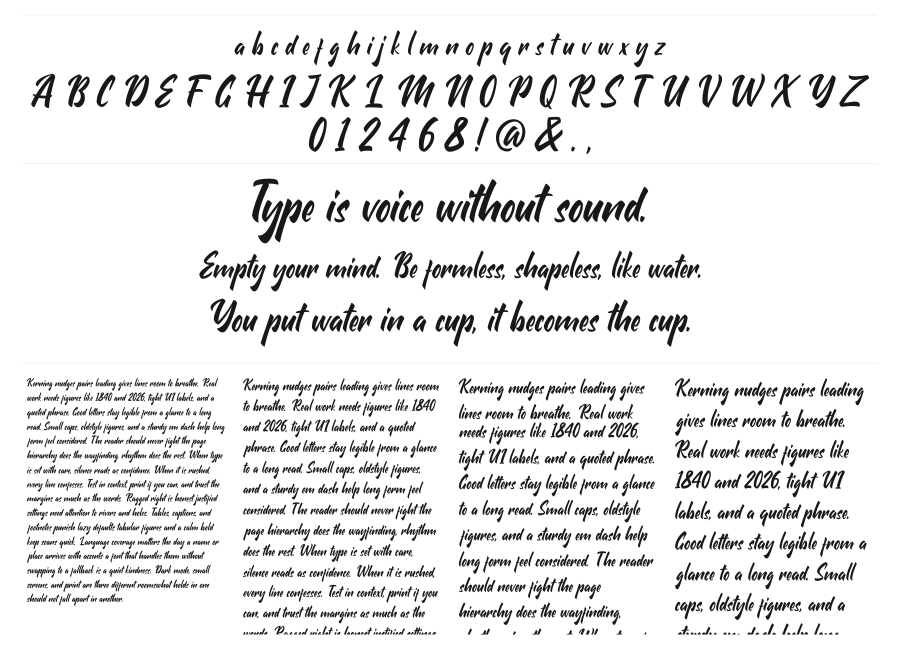 a b c d e f g h i j k l m n o p q r s t u v w x y z
A B C D E F G H I J K L M N O P Q R S T U V W X Y Z
0 1 2 4 6 8 ! @ & . ,
Type is voice without sound.
Empty your mind. Be formless, shapeless, like water.
You put water in a cup, it becomes the cup.
Kerning nudges pairs leading gives lines room to breathe. Real
work needs figures like 1840 and 2026, tight UI labels, and a
quoted phrase. Good letters stay legible from a glance to a long
read. Small caps, oldstyle figures, and a sturdy em dash help long
form feel considered. The reader should never fight the page
hierarchy does the wayfinding, rhythm does the rest. When type
is set with care, silence reads as confidence. When it is rushed,
every line confesses. Test in context, print if you can, and trust the
margins as much as the words. Ragged right is honest justified
settings need attention to rivers and holes. Tables, captions, and
footnotes punish lazy defaults tabular figures and a calm bold
keep scans quick. Language coverage matters the day a name or
place arrives with accents a font that handles them without
swapping to a fallback is a quiet kindness. Dark mode, small
screens, and print are three different rooms what holds in one
should not fall apart in another.
Kerning nudges pairs leading gives lines room
to breathe. Real work needs figures like 1840
and 2026, tight UI labels, and a quoted
phrase. Good letters stay legible from a glance
to a long read. Small caps, oldstyle figures,
and a sturdy em dash help long form feel
considered. The reader should never fight the
page hierarchy does the wayfinding, rhythm
does the rest. When type is set with care,
silence reads as confidence. When it is rushed,
every line confesses. Test in context, print if you
can, and trust the margins as much as the
words. Ragged right is honest justified settings
Kerning nudges pairs leading gives
lines room to breathe. Real work
needs figures like 1840 and 2026,
tight UI labels, and a quoted phrase.
Good letters stay legible from a glance
to a long read. Small caps, oldstyle
figures, and a sturdy em dash help
long form feel considered. The reader
should never fight the page
hierarchy does the wayfinding,
rhythm does the rest. When type is
Kerning nudges pairs leading
gives lines room to breathe.
Real work needs figures like
1840 and 2026, tight UI
labels, and a quoted phrase.
Good letters stay legible from a
glance to a long read. Small
caps, oldstyle figures, and a
sturdy em dash help long